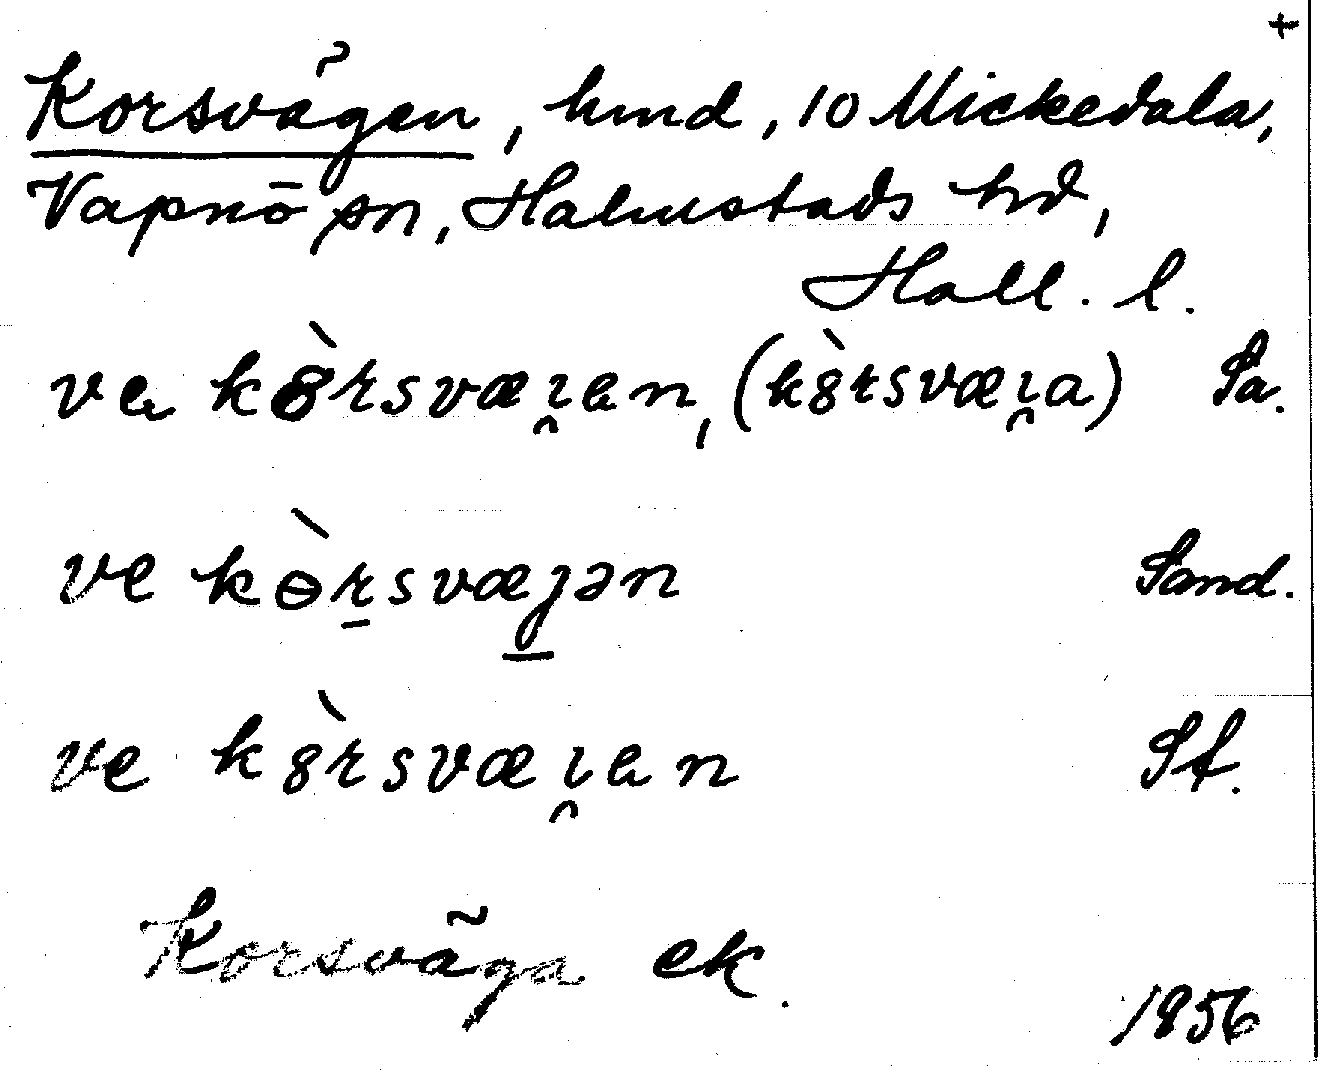 +
Korsvägen, hmd, 10 Mickedala,
Vapnö sn, Halmstads hd,
Hall. l.
va kȯ̀rsvæi̯an, (kȣ̀rsvæi̯a) Sa.
ve kɵ̀rsvæjən Sand.
ve kȣ̀rsvæi̯an St.
Korsväga ek.
1856